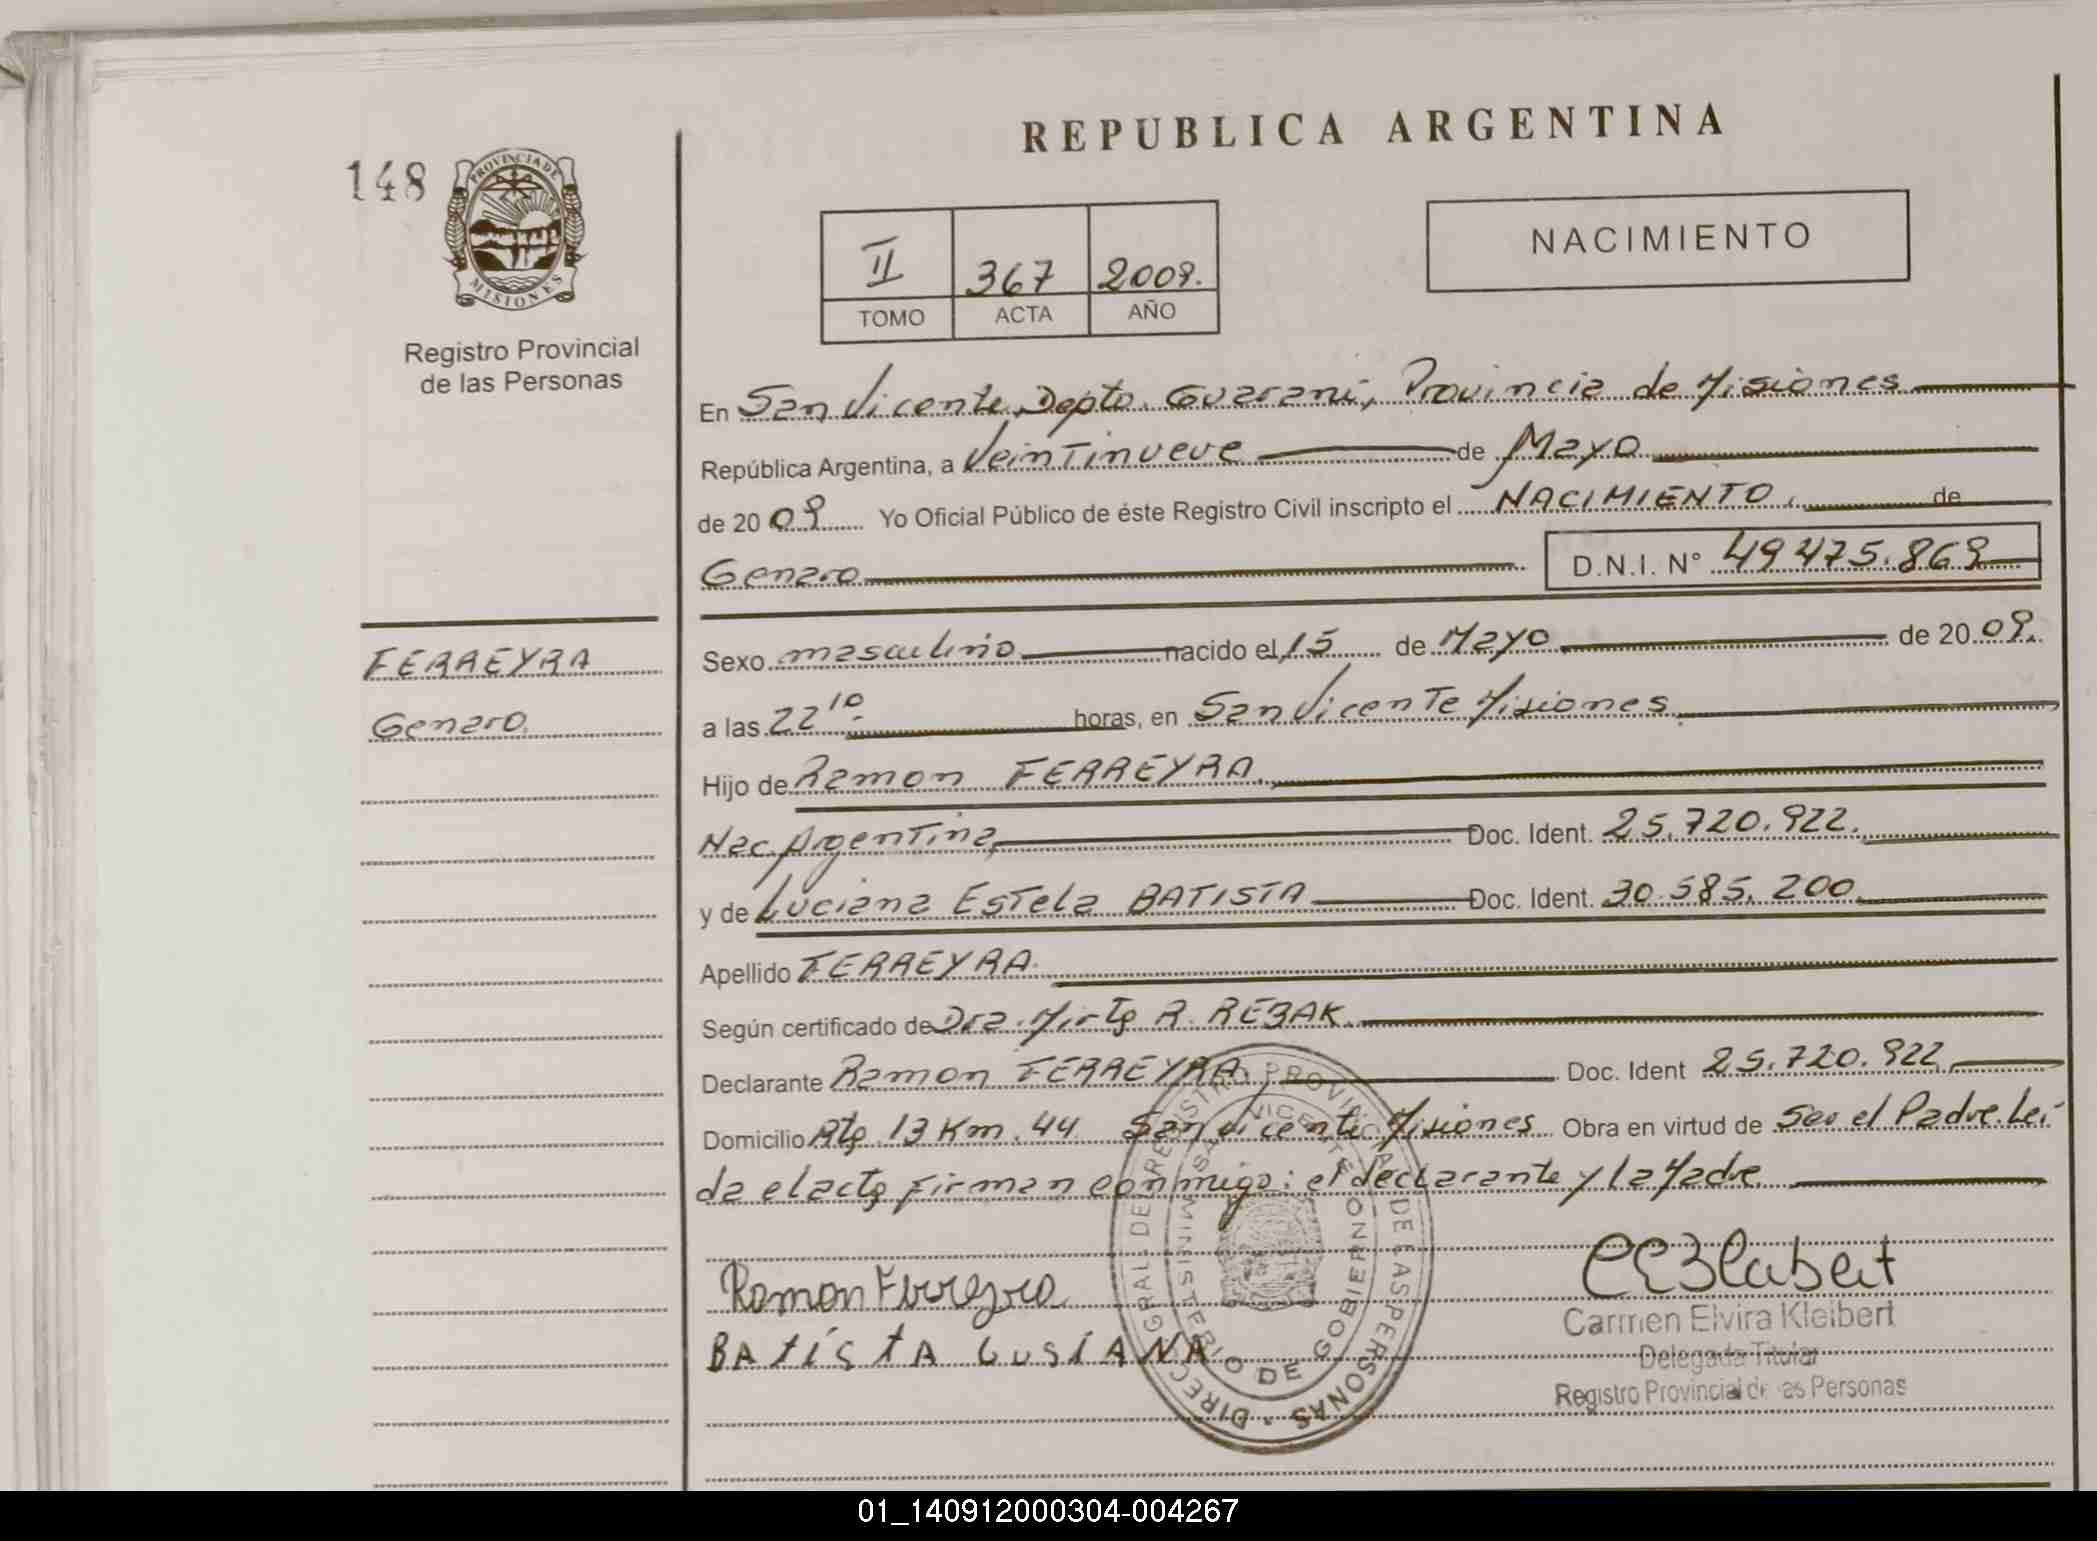 REPUBLICA ARGENTINA
148
PROVINCIA DE
MISIONES
Registro Provincial
de las Personas
II 367 2009.
TOMO ACTA AÑO
NACIMIENTO
En San Vicente, Depto. Guarani, Provincia de Misiones
República Argentina, a Veintinueve de Mayo
de 2009 Yo Oficial Público de éste Registro Civil inscripto el NACIMIENTO. de
Genaro D.N.I. N° 49 475.869
FERREYRA
Genaro.
Sexo masculino nacido el 15 de Mayo de 2009.
a las 22 10 horas, en San Vicente Misiones.
Hijo de Ramon FERREYRA.
Nac. Argentina, Doc. Ident. 25.720.922.
y de Luciana Estela BATISTA Doc. Ident. 30.585.200
Apellido FERREYRA.
Según certificado de Dra. Mirta R. REBAK.
Declarante Ramon FERREYRA. Doc. Ident 25.720.922
Domicilio Rta. 13 Km. 44 San Vicente Misiones Obra en virtud de Ser el Padre. Lei
da el acta firman conmigo: el declarante y la Madre
Ramon Ferreyra
BAtistA LusiANA
DIREC. GRAL. DEL REGISTRO PROVINCIAL DE LAS PERSONAS
SAN VICENTE
MINISTERIO DE GOBIERNO
Carmen Elvira Kleibert
Delegada Titular
Registro Provincial de las Personas
01_140912000304-004267